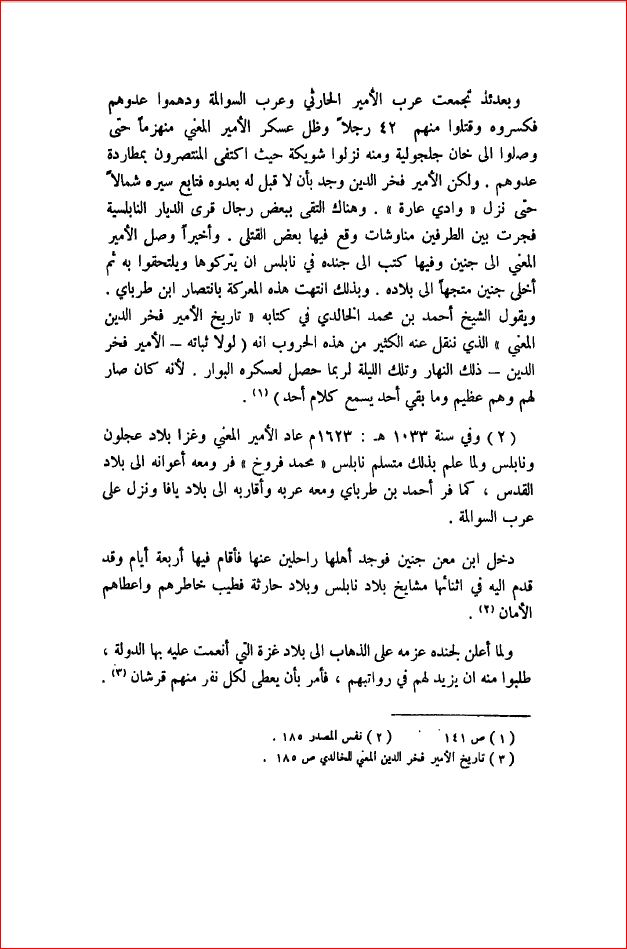 وبعدئذ تجمعت عرب الأمير الحارثي وعرب السوالمة ودهموا عدوهم
فكسروه وقتلوا منهم ٤٢ رجلاً وظل عسكر الأمير المعني منهزماً حتى
وصلوا الى خان جلجولية ومنه نزلوا شويكة حيث اكتفى المنتصرون بمطاردة
عدوهم . ولكن الأمير فخر الدين وجد بأن لا قبل له بعدوه فتابع سيره شمالاً
حتى نزل « وادي عارة » . وهناك التقى ببعض رجال قرى الديار النابلسية
فجرت بين الطرفين مناوشات وقع فيها بعض القتلى . وأخيراً وصل الأمير
المعني الى جنين وفيها كتب الى جنده في نابلس ان يتركوها ويلتحقوا به ثم
أخلى جنين متجهاً الى بلاده . وبذلك انتهت هذه المعركة بانتصار ابن طرباي .
ويقول الشيخ أحمد بن محمد الخالدي في كتابه « تاريخ الأمير فخر الدين
المعني » الذي ننقل عنه الكثير من هذه الحروب انه ( لولا ثباته – الأمير فخر
الدين – ذلك النهار وتلك الليلة لربما حصل لعسكره البوار . لأنه كان صار
لهم وهم عظيم وما بقي أحد يسمع كلام أحد ) (١) .
( ٢ ) وفي سنة ١٠٣٣ هـ : ١٦٢٣م عاد الأمير المعني وغزا بلاد عجلون
ونابلس ولما علم بذلك متسلم نابلس « محمد فروخ » فر ومعه أعوانه الى بلاد
القدس ، كما فر أحمد بن طرباي ومعه عربه وأقاربه الى بلاد يافا ونزل على
عرب السوالمة .
دخل ابن معن جنين فوجد أهلها راحلين عنها فأقام فيها أربعة أيام وقد
قدم اليه في اثنائها مشايخ بلاد نابلس وبلاد حارثة فطيب خاطرهم واعطاهم
الأمان (٢) .
ولما أعلن لجنده عزمه على الذهاب الى بلاد غزة التي أنعمت عليه بها الدولة ،
طلبوا منه ان يزيد لهم في رواتبهم ، فأمر بأن يعطى لكل نفر منهم قرشان (٣) .
( ١ ) ص ١٤١ ( ٢ ) نفس المصدر ١٨٥ .
( ٣ ) تاريخ الأمير فخر الدين المعني للخالدي ص ١٨٥ .